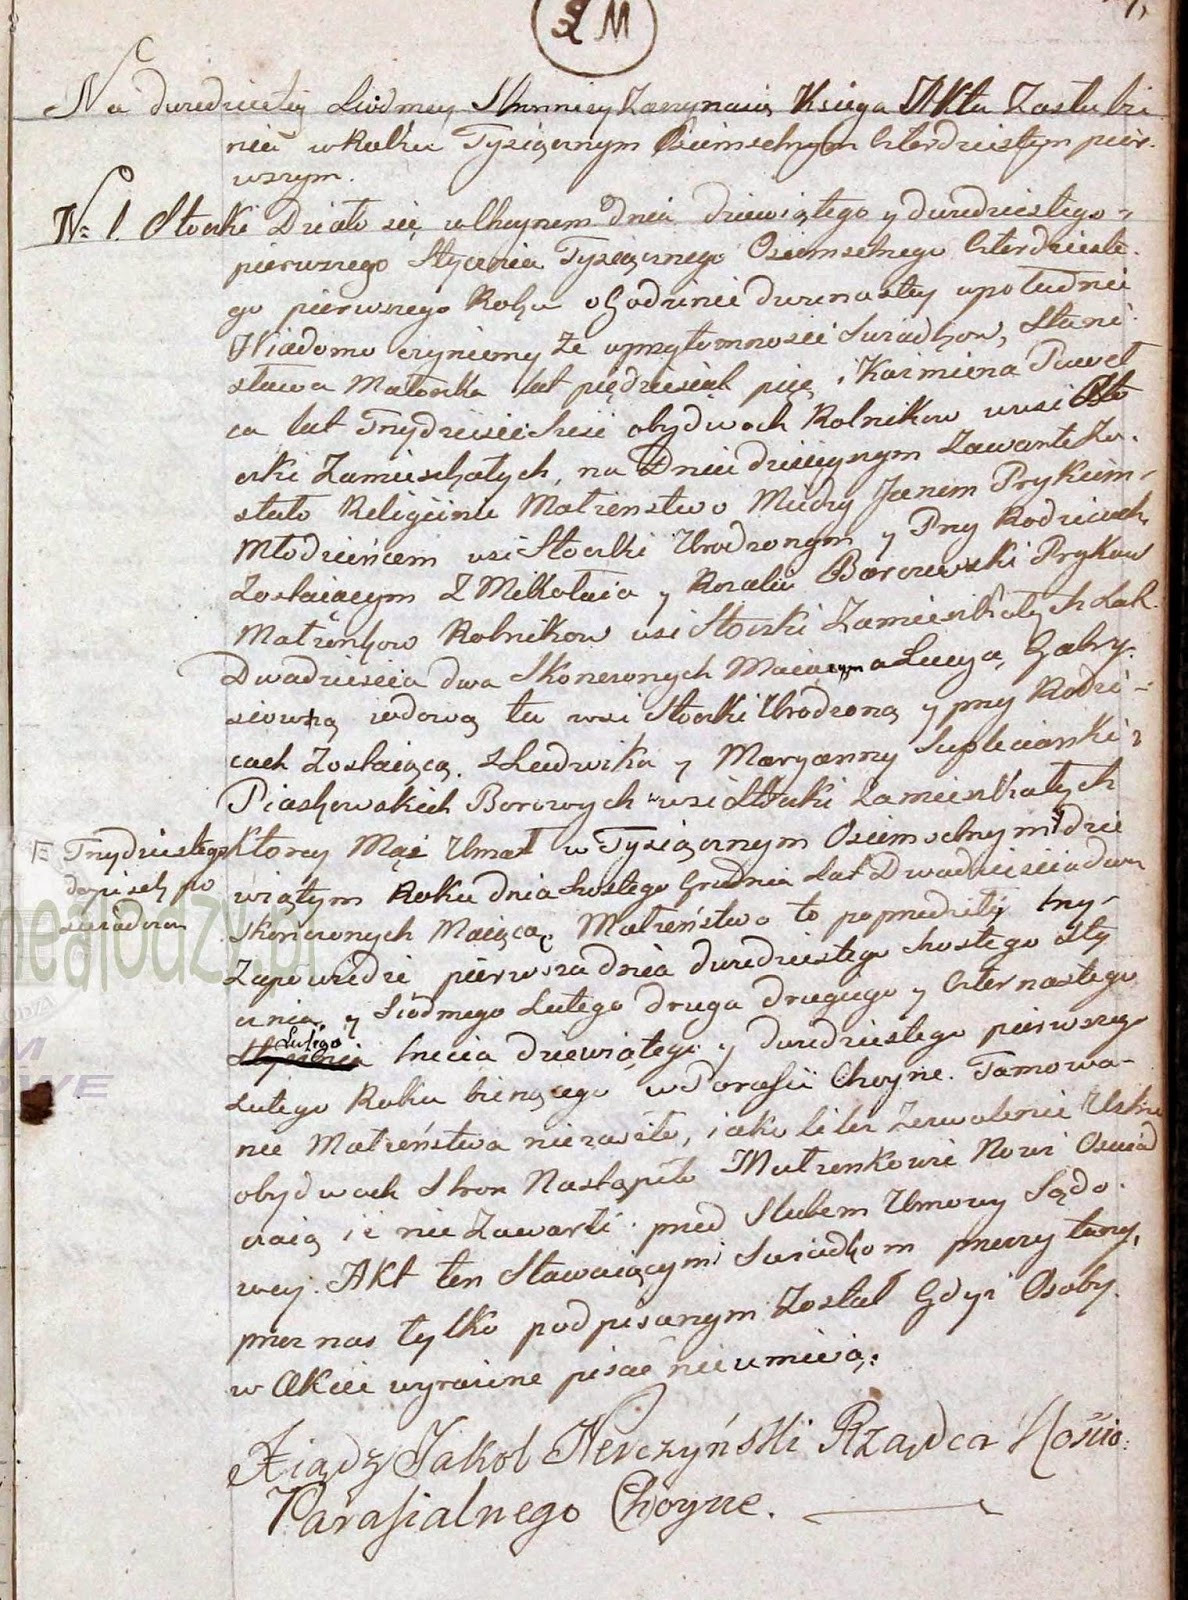 2 M
Na dwudziestey Siódmey Stronnicy Zaczynaią Księga Akta Zaślubi
nia w Roku Tysiącznym Osiemsetnym Czterdziestym pier-
wszym.
N: 1. Stocki Działo się w Choynem dnia dziewiątego y dwudziestego
pierwszego Stycznia Tysiącznego Osiemsetnego Czterdzieste-
go pierwszego Roku o Godzinie dwunastey w południe
Wiadomo czyniemy że w przytomności Swiadkow, Stani-
sława Matouska lat piędziesiąt pię i Kazmierza Paweł
ca lat Trzydzieście Sześć obydwoch Rolnikow w wsi Sto
cki Zamieszkałych, na Dniu dzisieyszym Zawarte Zo-
stało Religiine Małżeństwo Między Janem Prykiem
Młodzieńcem w wsi Stocki Urodzonym y Przy Rodzicach
Zostaiącym Z Mikołaia y Rozalii Borczewski Prykow
Małżonkow Rolnikow w wsi Stocki Zamieszkałych Lat
Dwadzieścia dwa Skonczonych Maiącym a Łucyą Gabry-
siowką wdową tu w wsi Stocki Urodzoną y przy Rodzi-
cach Zostaiącą. z Ludwika y Maryanny
Piaskowskich Borowych w wsi Stocki Zamieszkałych
Ktorey Mąż Umarł w Tysiącznym Osiemsetnym dzie
Trzydziestego
dopisek po
wiątym Roku dnia Szostego Grudnia Lat Dwadzieścia dwa
Skonczonych Maiącą. Małżeństwo to poprzedziły trzy
Zapowiedzi pierwsza dnia dwudziestego Szostego Sty
cznia, y Siódmego Lutego druga drugiego y Czternastego
Lutego
Stycznia trzecia dziewiątego y dwudziestego pierwszego
Lutego Roku bierzącego w Parafii Choyne. Tamowa-
nie Małżeństwa nie zaszło, iako li też Zezwolenie Ustne
obydwoch Stron Nastąpiło Małżonkowie Nowi Oswiad
czaią iż nie Zawarli przed Slubem Umowy Sądo-
wey. Akt ten Stawaiącymi Swiadkom przeczytany,
przez nas tylko podpisanym Został Gdyż Osoby
w Akcie wyrażone pisać nie umieią:
Xiądz Jakob Nerczyński Rządca Kościo:
Parafialnego Choyne.